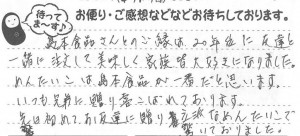 待ってま〜す♪
お便り・ご感想などなどお待ちしております。
島本食品さんとのご縁は、20年位に友達と
一緒に注文して美味しく家族皆大好きになりました。
めんたいこは島本食品が一番だと思います。
いつも兄弟に贈り喜こばれております。
先日初めてお友達に贈り立派なめんたいこで
驚いておりました。